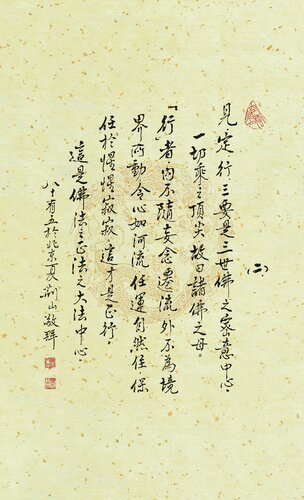 (二)
見定行三要是三世佛之密意中心。
一切乘之頂尖故曰諸佛之母。
「行」者內不隨妄念遷流外不為境
界所動令心如河流任運自然住，保
任於惺惺寂寂，這才是正行。
這是佛法之正法之大法中心。
八十有五於北京夏荊山敬